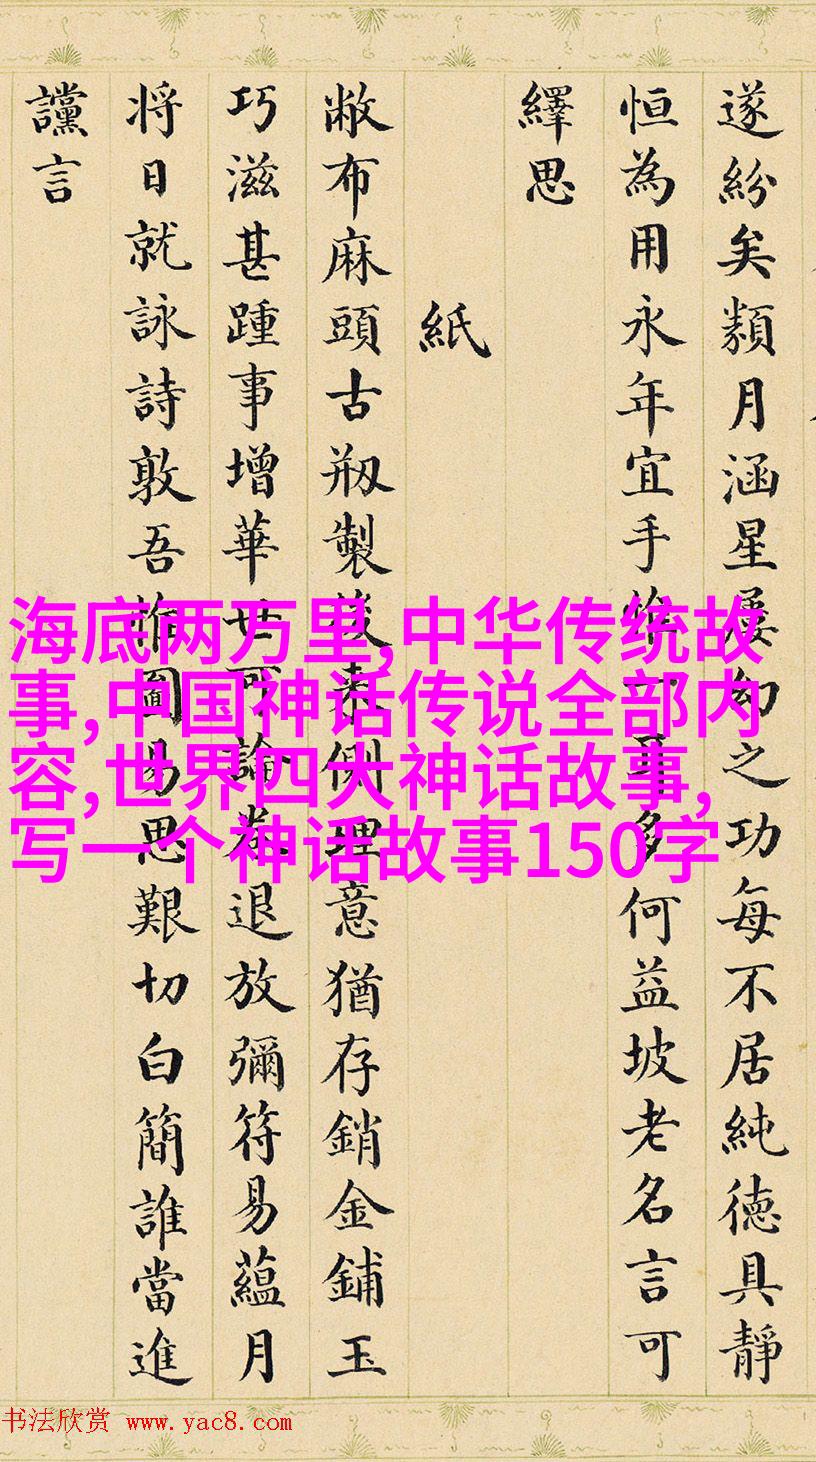 遂紛矣類月涵星屡幻之功每不居純德具靜
恒為用永年宜手 多何益坡老名言可
繹思
紙
敝布麻頭古剏製後来側理意猶存銷金鋪玉
巧滋甚踵事增華世可論卷退放彌符易蘊月
将日就詠詩敦吾 圖易思艱切白簡誰當進
讜言
海底两万里,中华传统故
事,中国神话传说全部内
容,世界四大神话故事,
写一个神话故事150字
书法欣赏 www.yac8.com